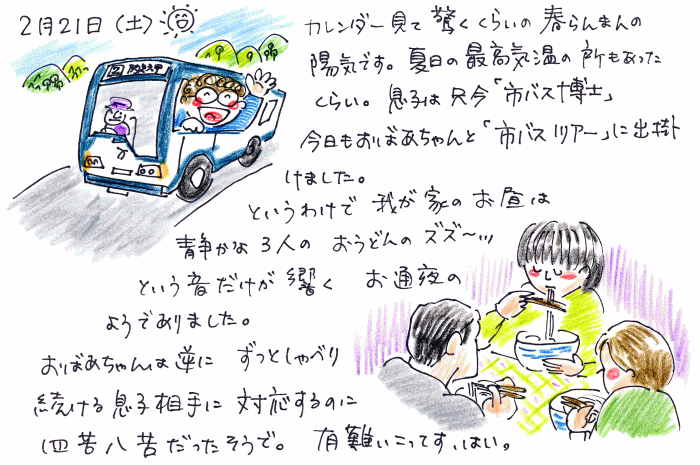 2月21日（土）
カレンダー見て驚くくらいの春らんまんの
陽気です。夏日の最高気温の所もあった
くらい。息子は只今「市バス博士」
今日もおばあちゃんと「市バスツアー」に出掛
けました。
というわけで我が家のお昼は
静かな3人のおうどんのズズ〜ッ
という音だけが響くお通夜の
ようでありました。
おばあちゃんは逆にずっとしゃべり
続ける息子相手に対応するのに
四苦八苦だったそうで。有難いこってす、はい。